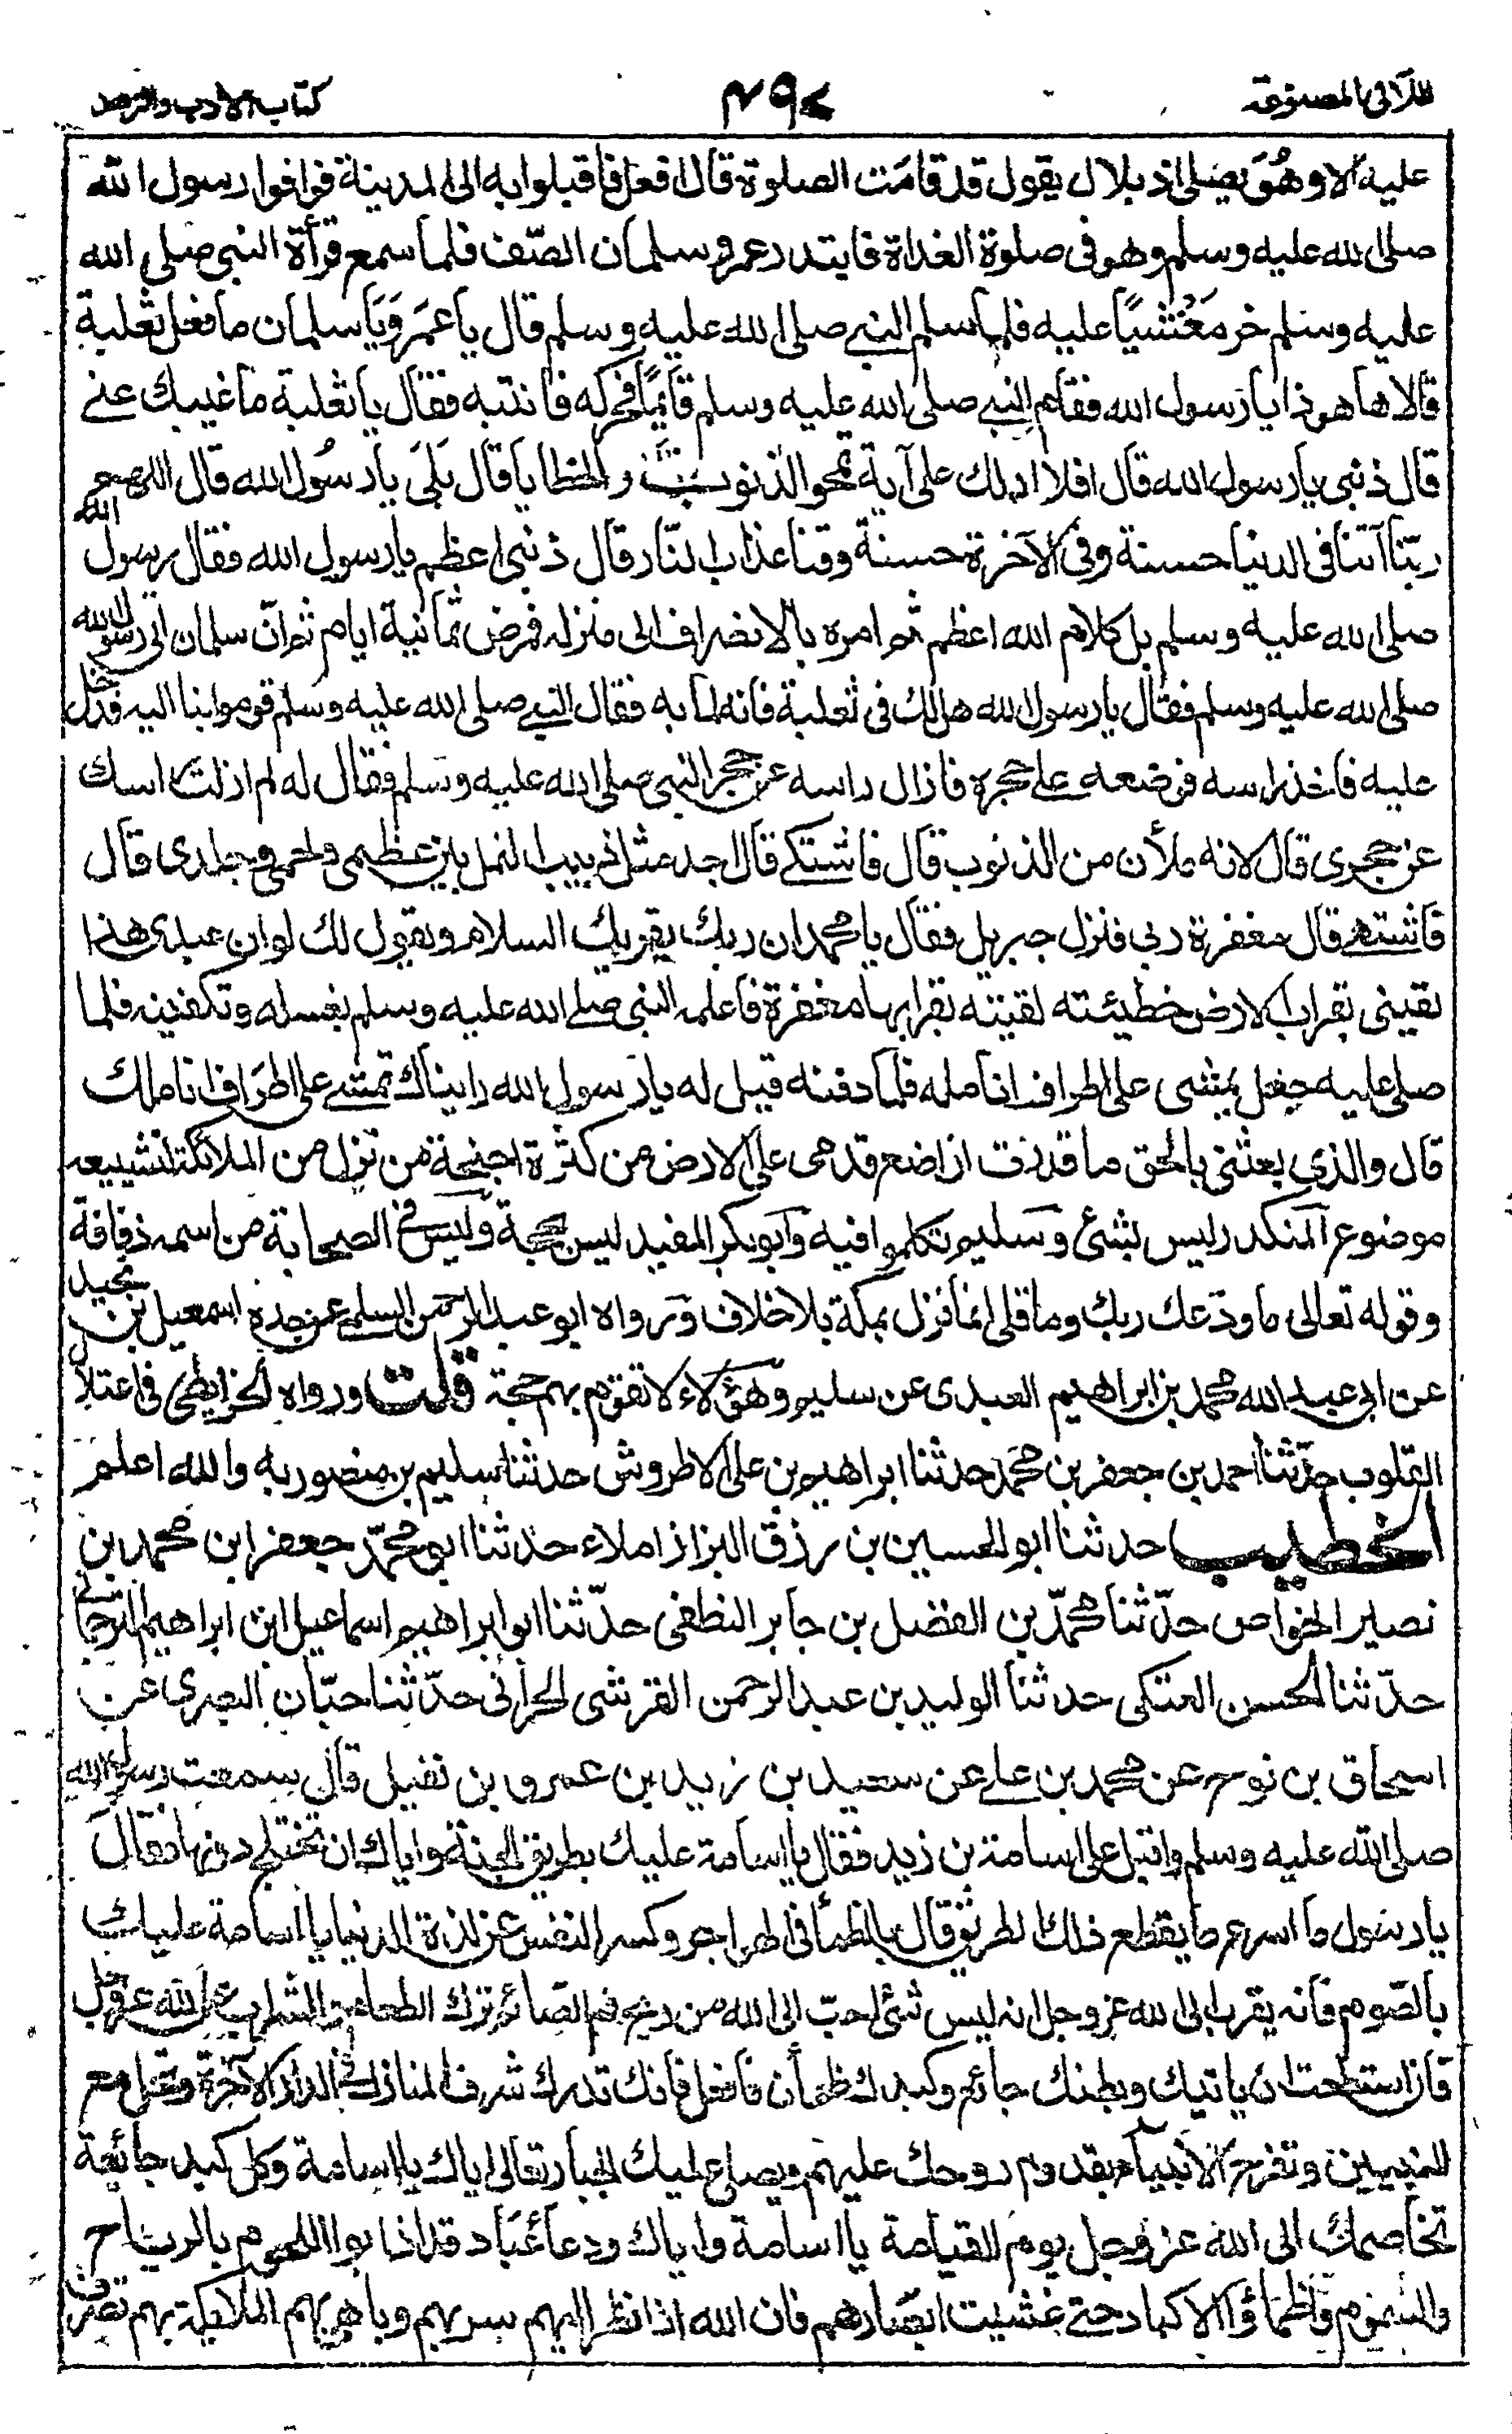 اللآلئ المصنوعة ٤٩٧ كتاب الادب والزهد
عليه الا وهُوَ يصلى اذ بلال يقول قد قامَت الصلوة قال افعل فاقبلوا به الى المدينة فوافوا رسول الله
صلى الله عليه وسلم وهو فى صلوة الغداة فابتدر عمر وسلمان الصّف فلما سمع قرأة النبى صلى الله
عليه وسلم خر مَغْشيًا عليه فلما سلم النبى صلى الله عليه وسلم قال يا عمَر وَيَا سلمان ما فعل ثعلبة
قالا ها هو ذا يا رسول الله فقام النبى صلى الله عليه وسلم قائمًا فحركه فانتبه فقال يا ثعلبة ما غيبك عنى
قال ذنبى يا رسول الله قال افلا ادلك على آية تمحو الذنوب والخطايا قال بَلىَ يا رسُول الله قال اللهم
ربّنا آتنا فى الدنيا حسنة وفى الآخرة حسنة وقنا عذاب النّار قال ذنبى اعظم يا رسول الله فقال رسول الله
صلى الله عليه وسلم بل كلام الله اعظم ثم امره بالانصراف الى منزله فمرض ثمانية ايام ثم انّ سلمان اتى رسول الله
صلى الله عليه وسلم فقال يا رسول الله هل لك فى ثعلبة فانه لما به فقال النبى صلى الله عليه وسلم قوموا بنا اليه فدخل
عليه فاخذ راسه فوضعه على حجره فازال راسه عن حجر النبى صلى الله عليه وسلم فقال له لم ازلت راسك
عن حجرى قال لانه ملأن من الذنوب قال فاشتكى قال اجد مثل دبيب النمل بين عظمى ولحمى وجلدى قال
فاشتهى قال مغفرة ربى فنزل جبريل فقال يا محمد ان ربك يقريك السلام ويقول لك لو ان عبدى هذا
لقينى بقراب الارض خطيئته لقيته بقرابها مغفرة فاعلمه النبى صلى الله عليه وسلم بغسله وتكفينه فلما
صلى عليه جعل يمشى على اطراف انامله فلما دفنه قيل له يا رسول الله رايناك تمشى على اطراف اناملك
قال والذى بعثنى بالحق ما قدرت ان اضع قدمى على الارض من كثرة اجنحة من نزل من الملائكة لتشييعه
موضوع المنكدر ليس بشئ وسليم تكلموا فيه وابو بكر المفيد ليس بحجة وليس فى الصحابة من اسمه ذفافة
وقوله تعالى ما ودّعك ربك وما قلى انما نزل بمكة بلا خلاف ورواه ابو عبد الرحمن السلمى عن جده اسمعيل بن نجيد
عن ابى عبد الله محمد بن ابراهيم العبدى عن سليم وهؤلاء لا تقوم بهم حجة قلت ورواه الخرايطى فى اعتلال
القلوب حدّثنا احمد بن جعفر بن محمد حدثنا ابراهيم بن على الاطروش حدثنا سليم بن منصور به والله اعلم
الخطيب حدثنا ابو الحسين بن رزق البزاز املاء حدثنا ابو محمّد جعفر ابن محمد بن
نصير الخواص حدّثنا محمّد بن الفضل بن جابر النطفى حدّثنا ابو ابراهيم اسماعيل ابن ابراهيم الترجمانى
حدّثنا الحسن العتكى حدثنا الوليد بن عبد الرحمن القرشى الحرّانى حدّثنا حبّان البصرى عن
اسحاق بن نوح عن محمد بن على عن سعيد بن زيد بن عمرو بن نفيل قال سمعت رسول الله
صلى الله عليه وسلم واقبل على اسامة بن زيد فقال يا اسامة عليك بطريق الجنة واياك ان تختلج دونها فقال
يا رسول ما اسرع ما يقطع ذلك الطريق قال بالظمأ فى الهواجر وكسر النفس عن لذة الدنيا يا اسامة عليك
بالصّوم فانه يقرب الى الله عز وجل انه ليس شئ احبّ الى الله من ريح فم الصّائم ترك الطعام والشراب لله عز وجل
فان استطعت ان ياتيك وبطنك جائع وكبدك ظمأن فافعل فانك تدرك شرف المنازل فى الدار الآخرة وتحل مع
النبيين وتفرح الانبياء بقدوم روحك عليهم ويصلى عليك الجبار تعالى اياك يا اسامة وكل كبد جائعة
تخاصمك الى الله عز وجل يوم القيامة يا اسامة واياك ودعا عُبّاد قد اذابوا اللحوم بالرياح
والسموم واظمأوا الاكباد حتى غشيت ابصارهم فان الله اذا نظر اليهم سر بهم وباهى بهم الملائكة بهم تصرف